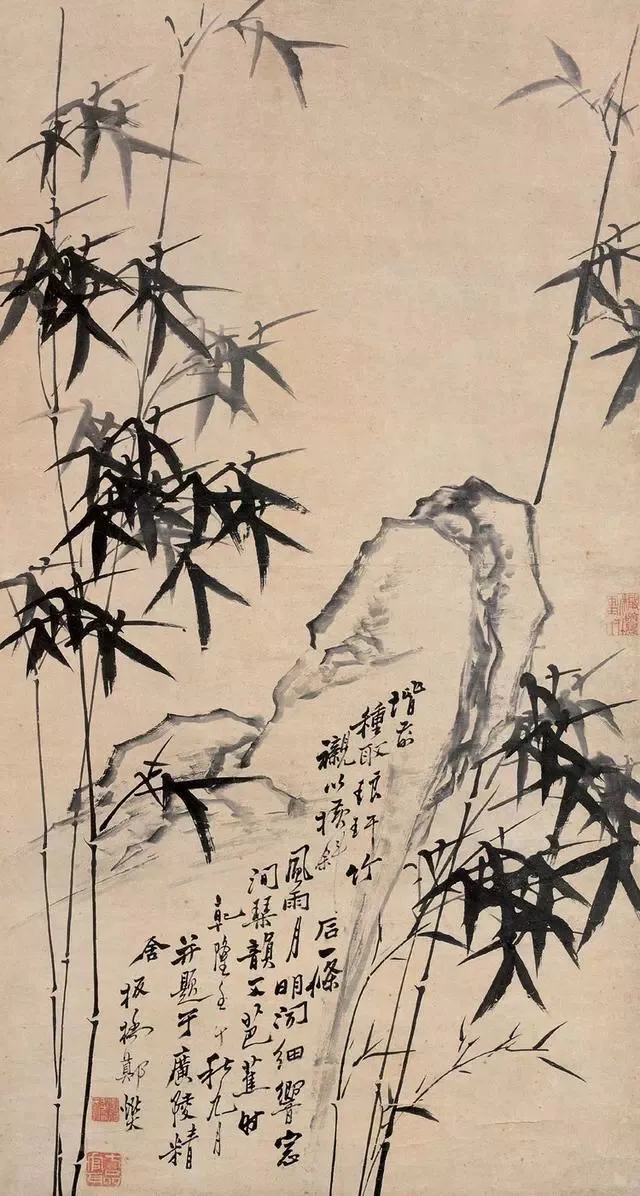 階前
種取琅玕竹
襯以橫斜
石一條
風雨月明聞細響窓
間琴韻蕉時
乾隆壬午秋九月
并題于廣陵精
舍 板橋鄭燮